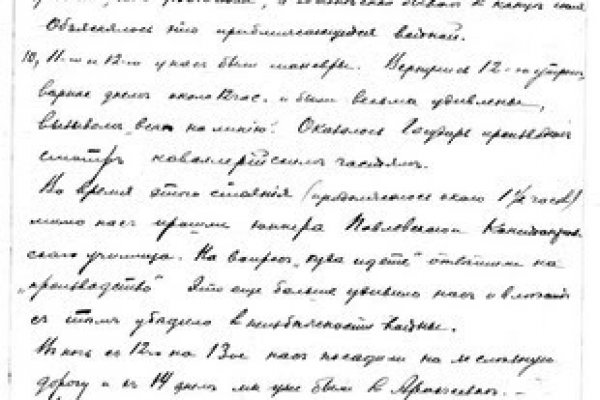 Объяснялось это приближающейся войной.
10, 11-го и 12-го у нас были маневры. Вернулись 12-го утром,
вернее днем около 12 час. и были весьма удивлены,
вызовом "всех на линию". Оказалось Государь производил
смотр кавалерийским частям.
Во время этого стояния (продолжалось около 1½ часов)
мимо нас прошли юнкера Павловского
ского училища. На вопрос "куда идете" отвечали на
"производство" Это еще больше удивило нас и
с тем убедило в неизбежности войны.
В ночь с 12го на 13ое нас посадили на железную
дорогу и 14 днем мы уже были в